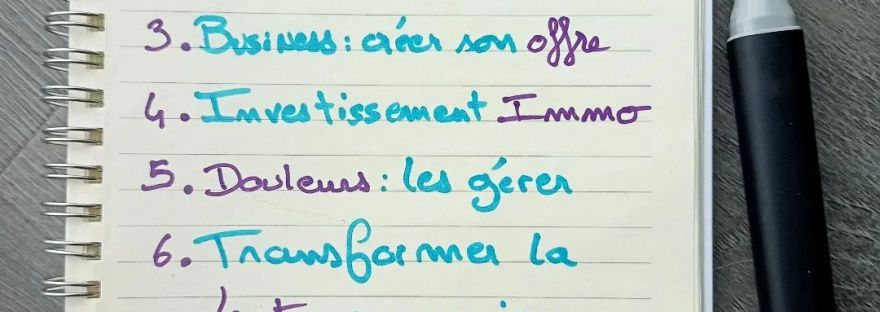 3. Business : créer son offre
4. Investissement Immo
5. Douleurs : les gérer
6. Transformer la